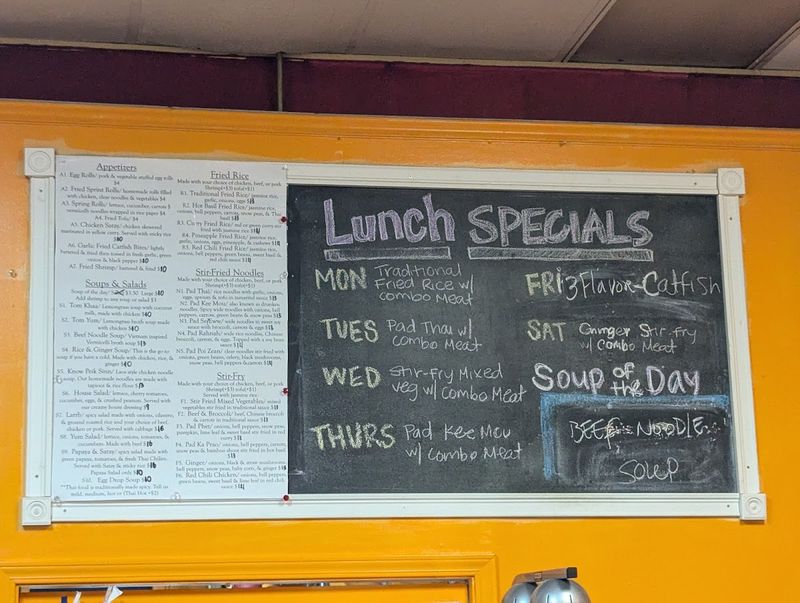 Appetizers
A1. Egg Rolls/ pork & vegetable stuffed egg rolls
$4
A2. Fried Spring Rolls/ homemade rolls filled
with chicken, clear noodles & vegetables $4
A3. Spring Rolls/ lettuce, cucumber, carrots &
vermicelli noodles wrapped in rice paper $4
A4. Fried Tofu/ $4
A5. Chicken Satay/ chicken skewered
marinated in yellow curry. Served with sticky rice
A6. Garlic Fried Catfish Bites/ lightly
battered & fried then tossed in fresh garlic, green
onion & black pepper $10
A7. Fried Shrimp/ battered & fried $10
Soups & Salads
Soup of the day/ $3.50 Large
Add shrimp to any soup or salad $3
S1. Tom Khaa/ Lemongrass soup with coconut
milk, made with chicken $10
S2. Tom Yum/ Lemongrass broth soup made
with chicken $10
S3. Beef Noodle Soup/ Vietnam inspired
Vermicelli broth soup
S4. Rice & Ginger Soup/ This is the go-to
soup if you have a cold. Made with chicken, rice, &
ginger $10
S5. Know Peik Sinn/ Laos style chicken noodle
soup. Our homemade noodles are made with
tapioca & rice flours
S6. House Salad/ lettuce, cherry tomatoes,
cucumber, eggs, & crushed peanuts. Served with
our creamy house dressing
S7. Larb/ spicy salad made with onions, cilantro,
& ground roasted rice and your choice of beef,
chicken or pork. Served with cabbage
S8. Yum Salad/ lettuce, onions, tomatoes, &
cucumbers. Made with beef
S9. Papaya & Satay/ spicy salad made with
green papaya, tomatoes, & fresh Thai Chilies.
Served with Satay & sticky rice
Papaya Salad only $10
S10. Egg Drop Soup $10
**Thai food is traditionally made spicy. Tell us
mild, medium, hot or (Thai Hot +$2)
Fried Rice
Made with your choice of chicken, beef, or pork
Shrimp(+$3) tofu(+$1)
R1. Traditional Fried Rice/ jasmine rice,
garlic, onions, eggs
R2. Hot Basil Fried Rice/ jasmine rice,
onions, bell peppers, carrots, snow peas, & Thai
Basil
R3. Curry Fried Rice/ red or green curry stir
fried with jasmine rice
R4. Pineapple Fried Rice/ jasmine rice,
garlic, onions, eggs, pineapple, & cashews
R5. Red Chili Fried Rice/ jasmine rice,
onions, bell peppers, green beans, sweet basil &
red chili sauce
Stir-Fried Noodles
Made with your choice of chicken, beef, or pork
Shrimp(+$3) tofu(+$1)
N1. Pad Thai/ rice noodles with garlic, onions,
eggs, sprouts & tofu in tamarind sauce
N2. Pad Kee Mou/ also known as drunken
noodles. Spicy wide noodles with onions, bell
peppers, carrots, green beans & snow peas
N3. Pad SeEww/ wide noodles in sweet soy
sauce with broccoli, carrots & eggs
N4. Pad Rahnah/ wide rice noodles, Chinese
broccoli, carrot, & egg. Topped with a soy bean
sauce
N5. Pad Poi Zean/ clear noodles stir fried with
onions, green beans, celery, black mushrooms,
snow peas, bell peppers & carrots
Stir-Fry
Made with your choice of chicken, beef, or pork
Shrimp(+$3) tofu(+$1)
Served with jasmine rice
F1. Stir Fried Mixed Vegetables/ mixed
vegetables stir fried in traditional sauce
F2. Beef & Broccoli/ beef, Chinese broccoli
& carrots in traditional sauce
F3. Pad Phet/ onions, bell peppers, snow peas,
pumpkin, lime leaf & sweet basil stir fried in red
curry
F4. Pad Ka Prau/ onions, bell peppers, carrots,
snow peas & bamboo shoots stir fried in hot basil
F5. Ginger/ onions, black & straw mushrooms,
bell peppers, snow peas, baby corn, & ginger
F6. Red Chili Chicken/ onions, bell peppers,
green beans, sweet basil & lime leaf in red chili
sauce
Lunch SPECIALS
MON Traditional
Fried Rice w/
combo Meat
TUES Pad Thai w/
combo Meat
WED Stir-fry Mixed
veg w/ combo Meat
THURS Pad Kee Mou
w/ combo Meat
FRI 3 Flavor-Catfish
SAT Ginger Stir-fry
w/ combo Meat
Soup of the Day
BEEF NOODLE
SOUP